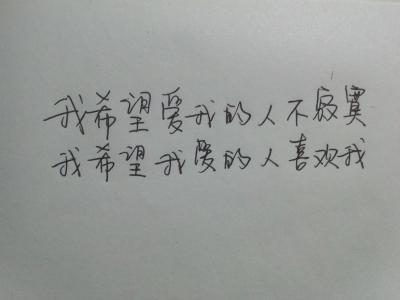 我希望爱我的人不寂寞
我希望我爱的人喜欢我